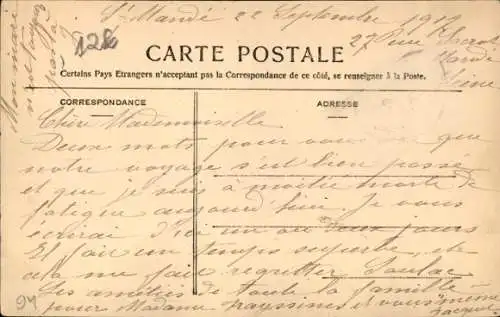 St Mandé 22 Septembre 1919
27 Rue Sacrot
St Mandé
Seine
128
CARTE POSTALE
Certains Pays Etrangers n'acceptant pas la Correspondance de ce côté, se renseigner à la Poste.
CORRESPONDANCE
ADRESSE
Chère Mademoiselle
Deux mots pour vous dire que
notre voyage s'est bien passé
et que je suis à moitié morte de
fatigue aujourd'hui. Je vous
écrirai d'ici un ou deux jours
Il fait un temps superbe, et
cela me fait regretter Soulac
Les amitiés de toute la famille
pour Madame et vous même
94